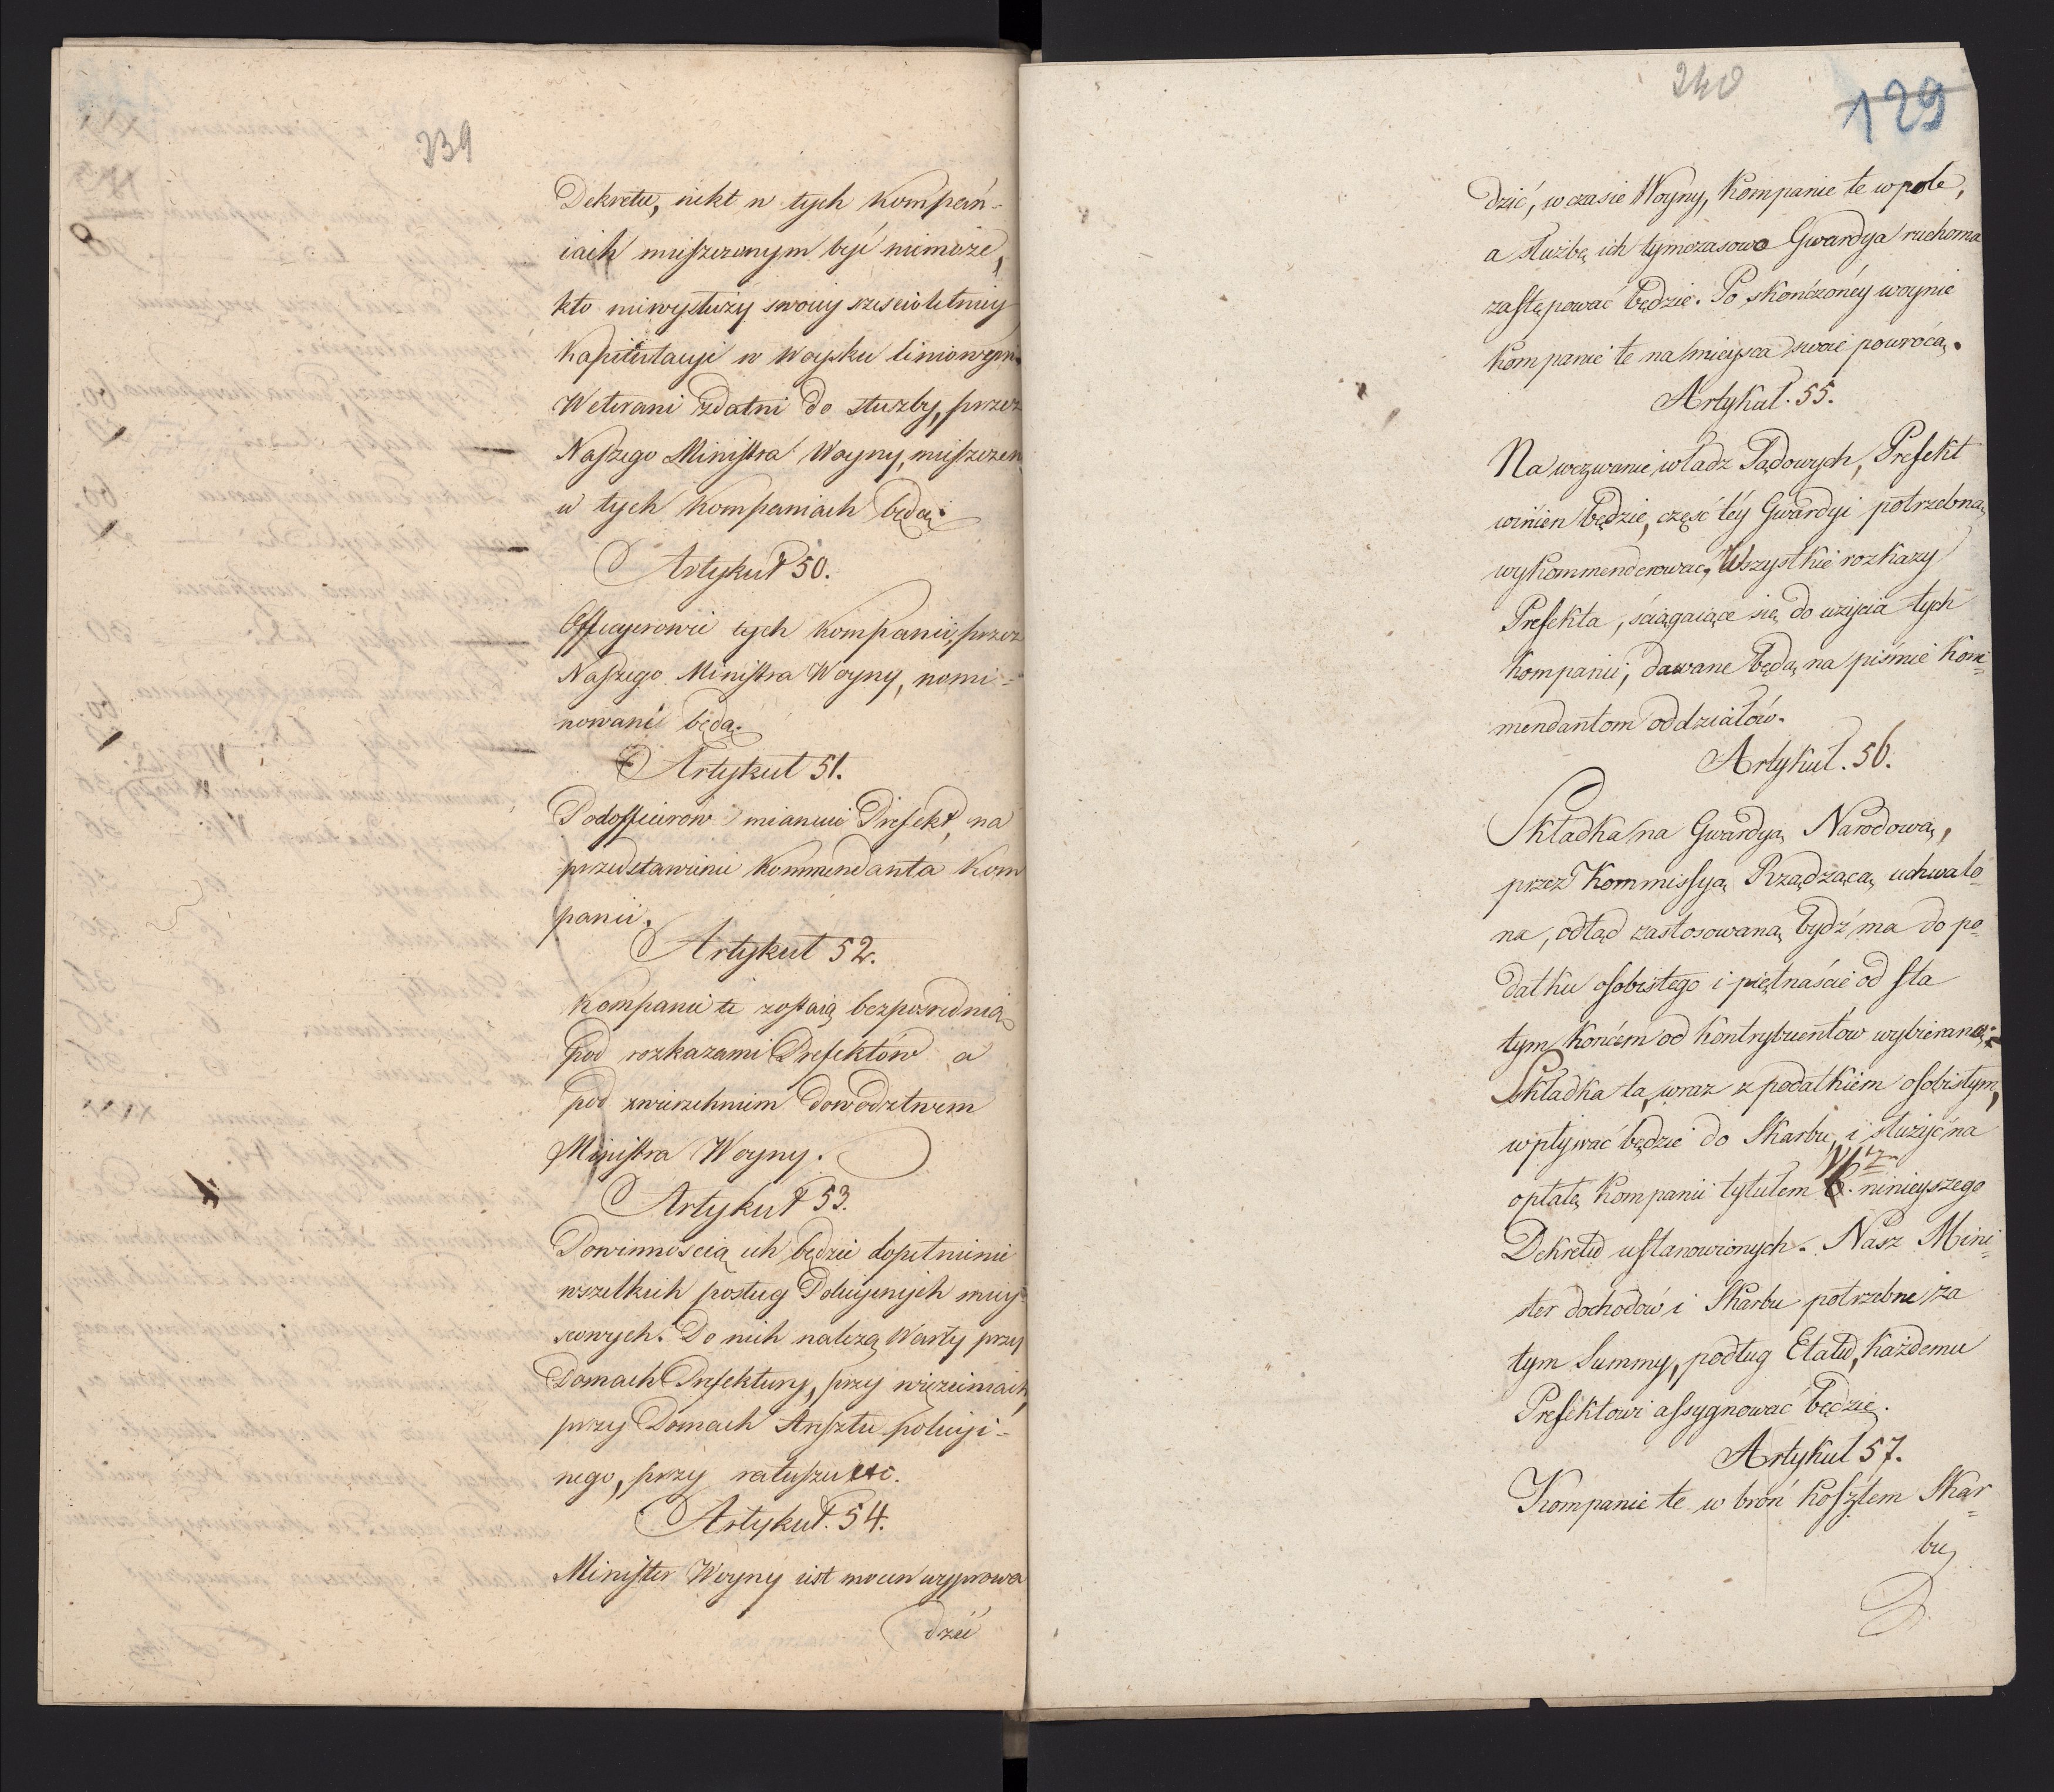 239
Dekretu, nikt w tych Kompan-
iach mieszczonym być niemoże,
kto niewysłuży swoiey sześcioletniey
Kapitulacyi w Woysku liniowym
Weterani zdatni do służby, przez
Naszego Ministra Woyny, mieszczeni
w tych Kompaniach będą.
Artykuł 50.
Officyerowie tych kompanii, przez
Naszego Ministra Woyny, nomi-
nowani będą.
Artykuł 51.
Podofficerów mianuie Prefekt, na
przedstawienie Kommendanta Kom
panii.
Artykuł 52.
Kompanie te zostaią bezpośrednio
pod rozkazami Prefektów a
pod zwierzchniem dowodztwem
Ministra Woyny.
Artykuł 53.
Powinnością ich będzie dopełnienie
wszelkich posług Policyinych miey-
scowych. Do nich należą Warty przy
Domach Prefektury, przy więzieniach,
przy Domach Aresztu policyi-
nego, przy ratuszu etc.
Artykuł. 54.
Minister Woyny iest mocen wyprowa
dzić
240
129
dzić, w czasie Woyny, Kompanie te w pole,
a służbę ich tymczasowo Gwardya ruchoma
zastępować będzie. Po skończonéy woynie
Kompanie te na mieysca swoie powrócą.
Artykuł. 55.
Na wezwanie władz Sądowych, Prefekt
winien będzie, część téy Gwardyi potrzebną,
wykommenderować, Wszystkie rozkazy
Prefekta, ściągaiące się do użycia tych
Kompanii, dawane będą na piśmie Kom-
mendantom oddziałów.
Artykuł. 56.
Składka na Gwardyą Narodową,
przez Kommissyą Rządzącą uchwalo-
na, odtąd zastosowaną bydź ma do po-
datku osobistego i piętnaście od sta
tym końcem od kontrybuentów wybieraną;
Składka ta, wraz z podatkiem osobistym,
wpływać będzie do Skarbu, i służyć na
opłatę Kompanii tytułem niniejszego
Dekretu ustanowionych. Nasz Mini-
ster dochodów i Skarbu potrzebne za
tym Summy, podług Etatu, każdemu
Prefektowi assygnować będzie.
Artykuł 57.
Kompanie te w broń kosztem Skar-
bu